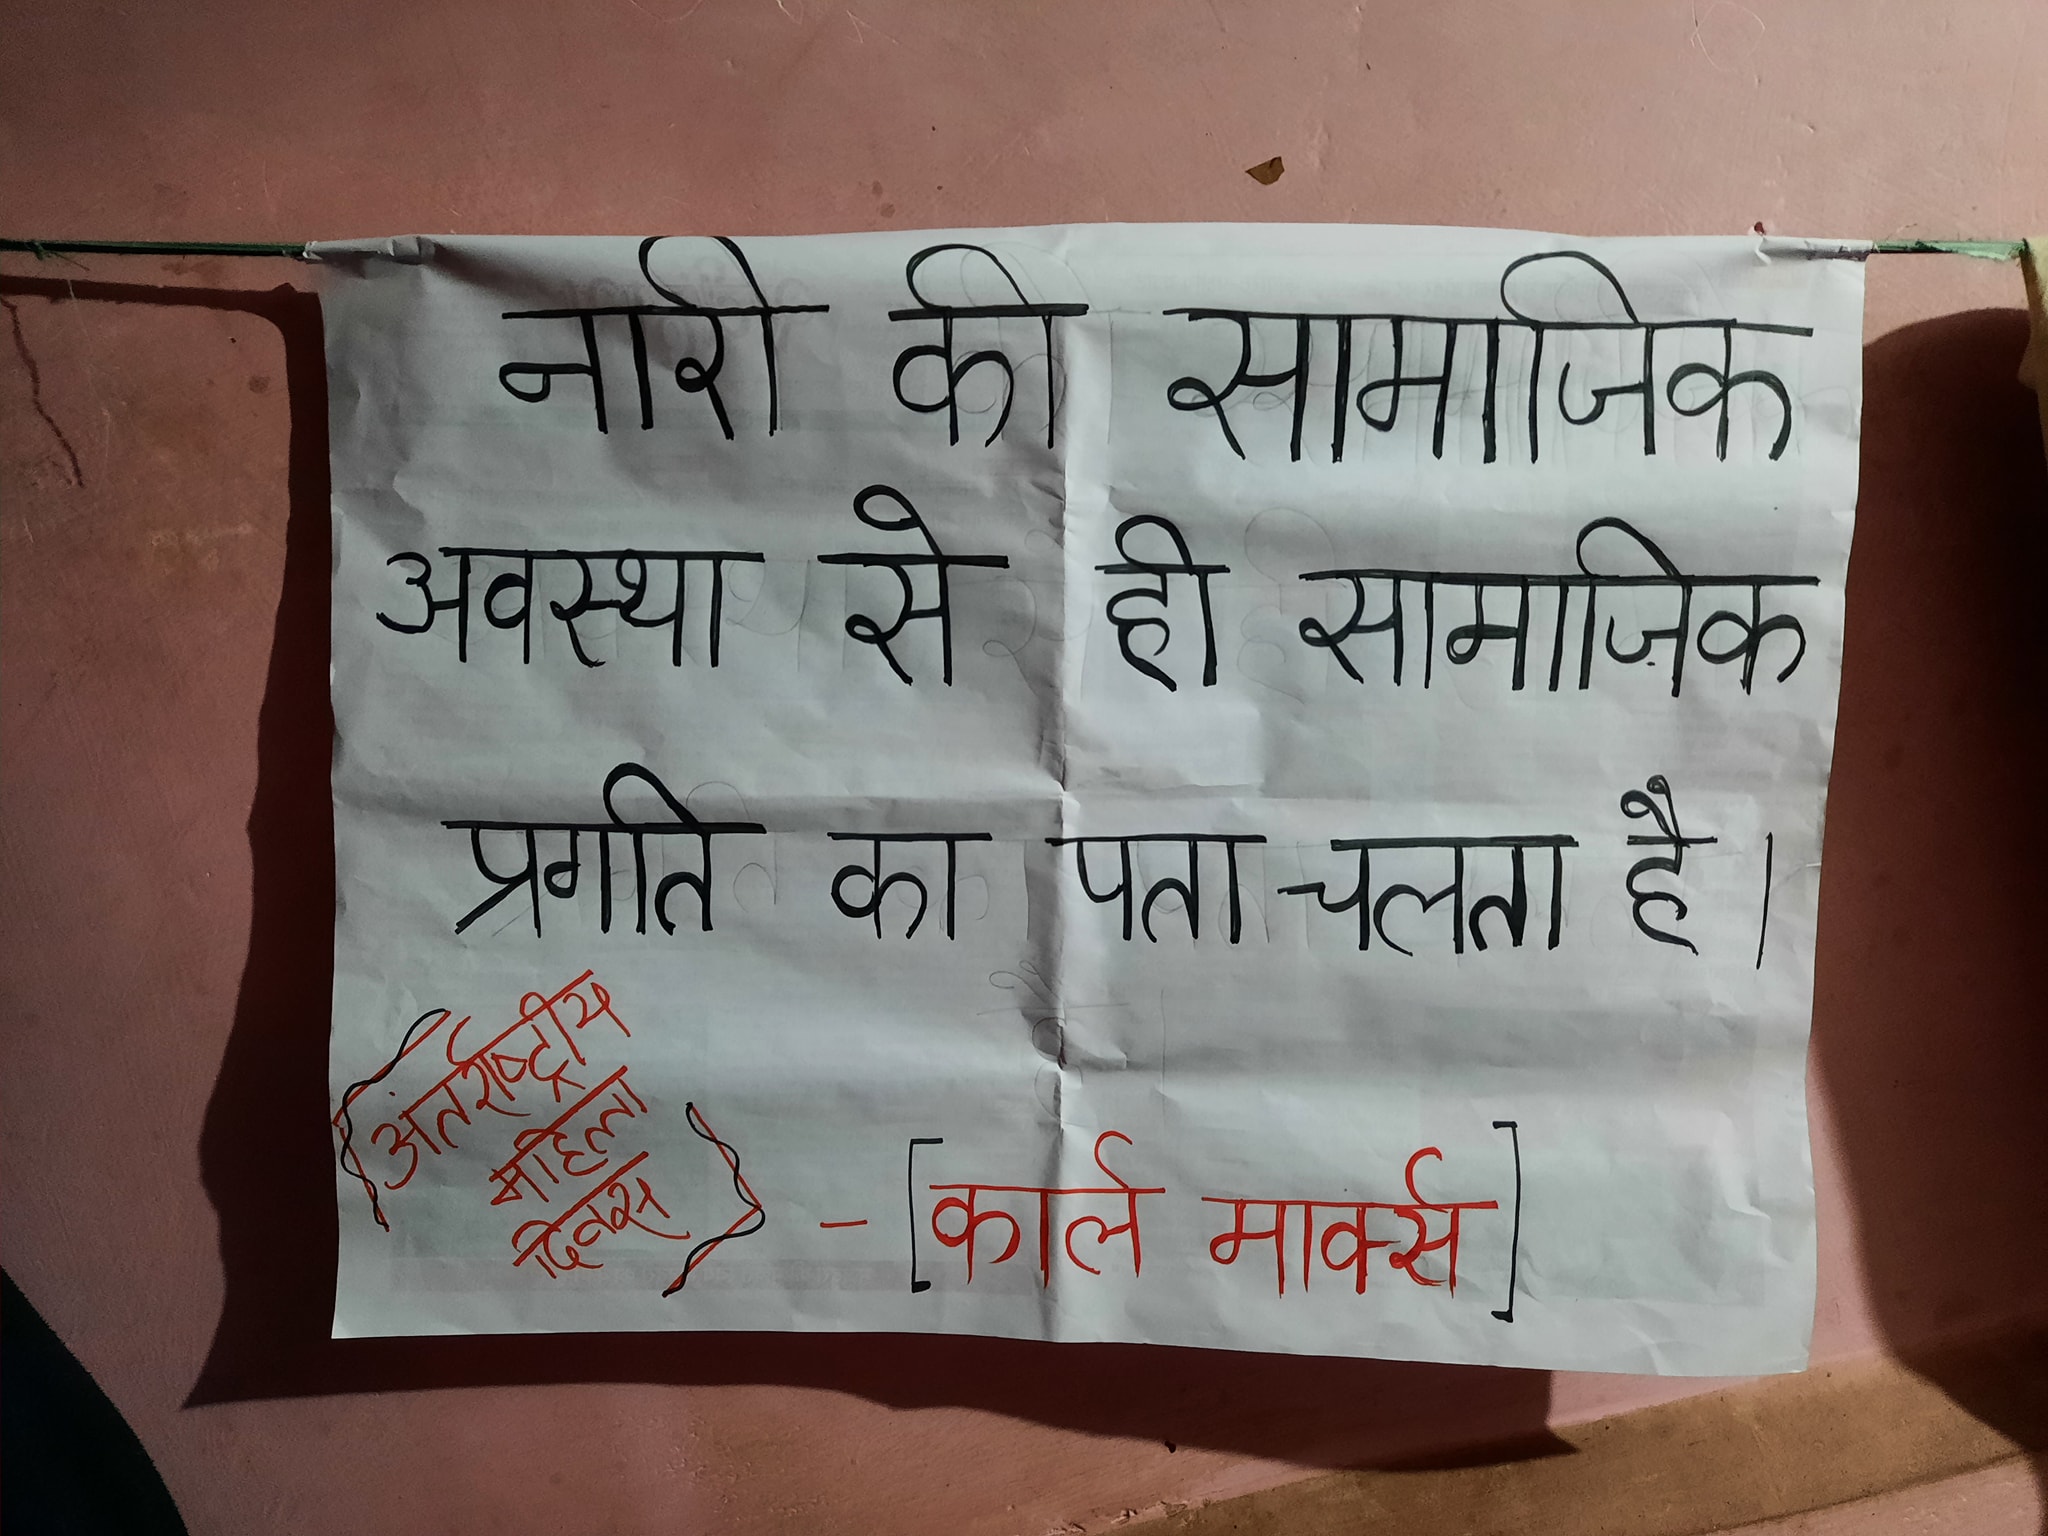 नारी की सामाजिक
अवस्था से ही सामाजिक
प्रगति का पता चलता है।
अंतर्राष्ट्रीय
महिला
दिवस
- [कार्ल मार्क्स]